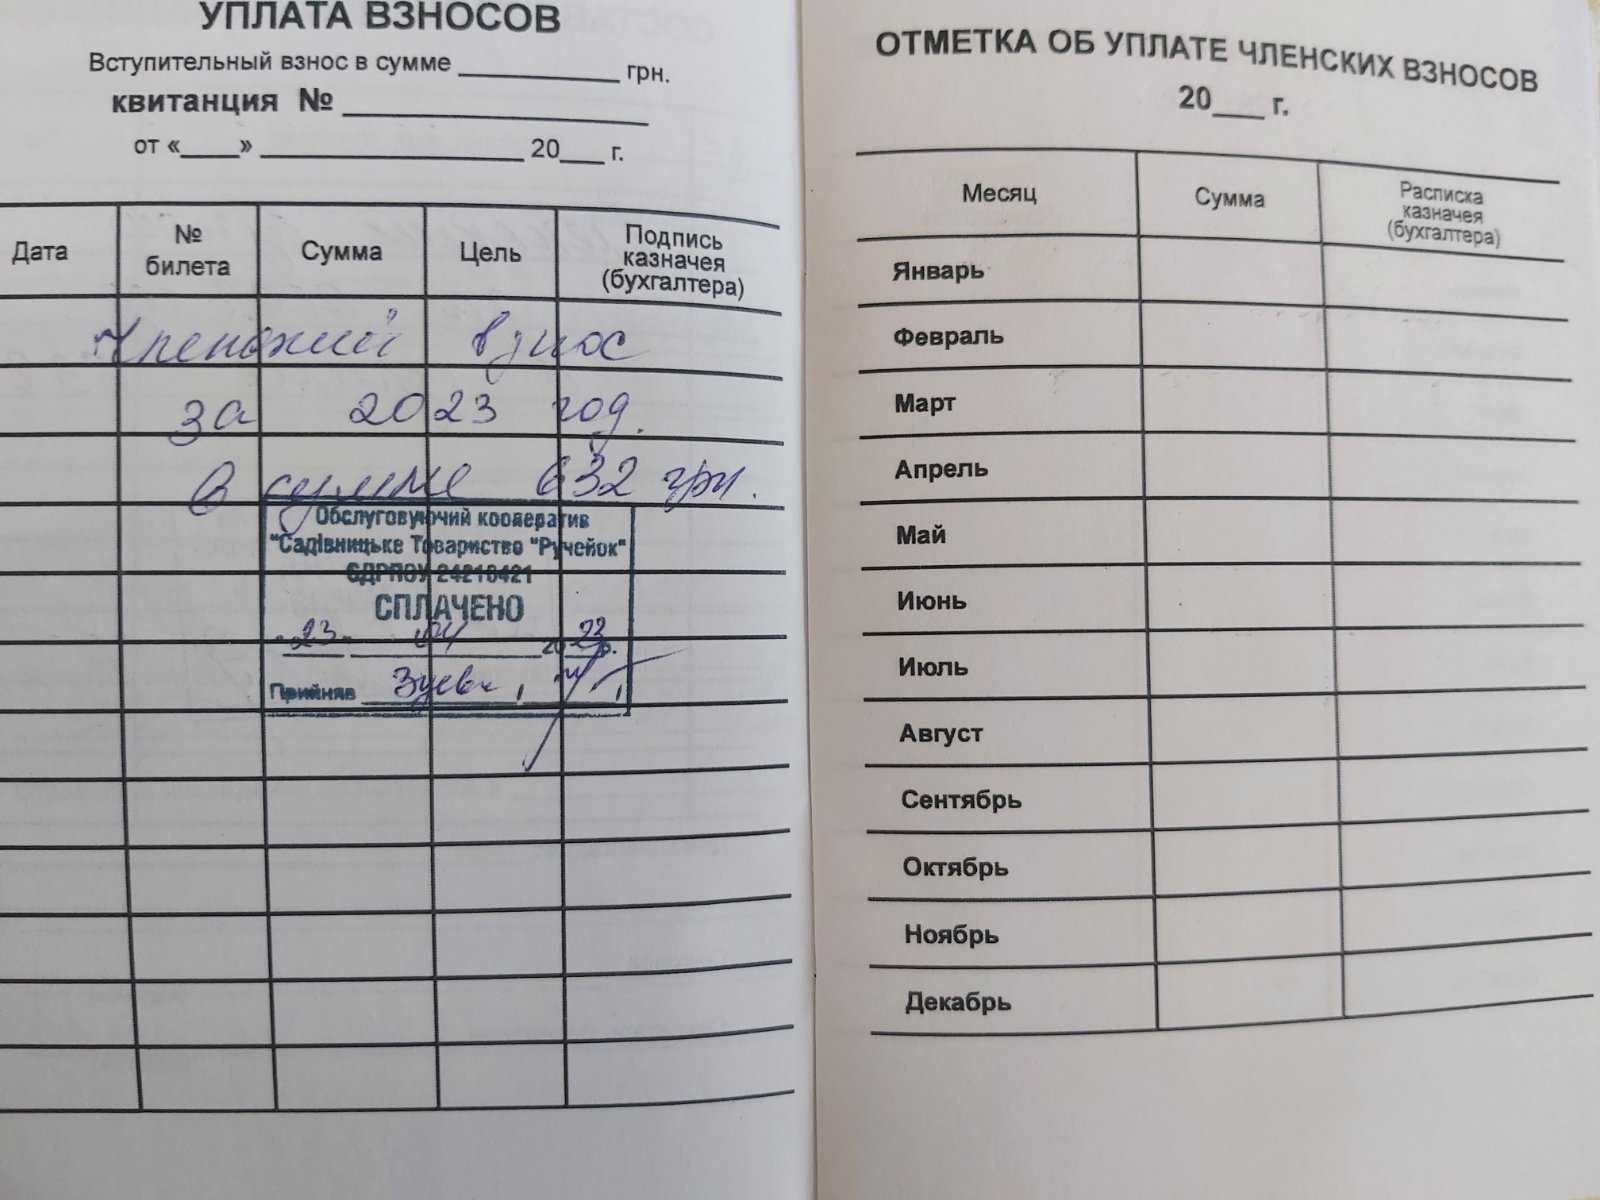 УПЛАТА ВЗНОСОВ
Вступительный взнос в сумме ________ грн.
квитанция № ________
от «____» ________ 20___ г.
Дата № билета Сумма Цель Подпись казначея (бухгалтера)
Членский взнос
за 2023 год.
В сумме 632 грн.
Обслуговуючий кооператив
"Садівницьке Товариство "Ручейок"
ЄДРПОУ 24210421
СПЛАЧЕНО
23 04 2023р.
Прийняв Зуева
ОТМЕТКА ОБ УПЛАТЕ ЧЛЕНСКИХ ВЗНОСОВ
20___ г.
Месяц Сумма Расписка казначея (бухгалтера)
Январь
Февраль
Март
Апрель
Май
Июнь
Июль
Август
Сентябрь
Октябрь
Ноябрь
Декабрь